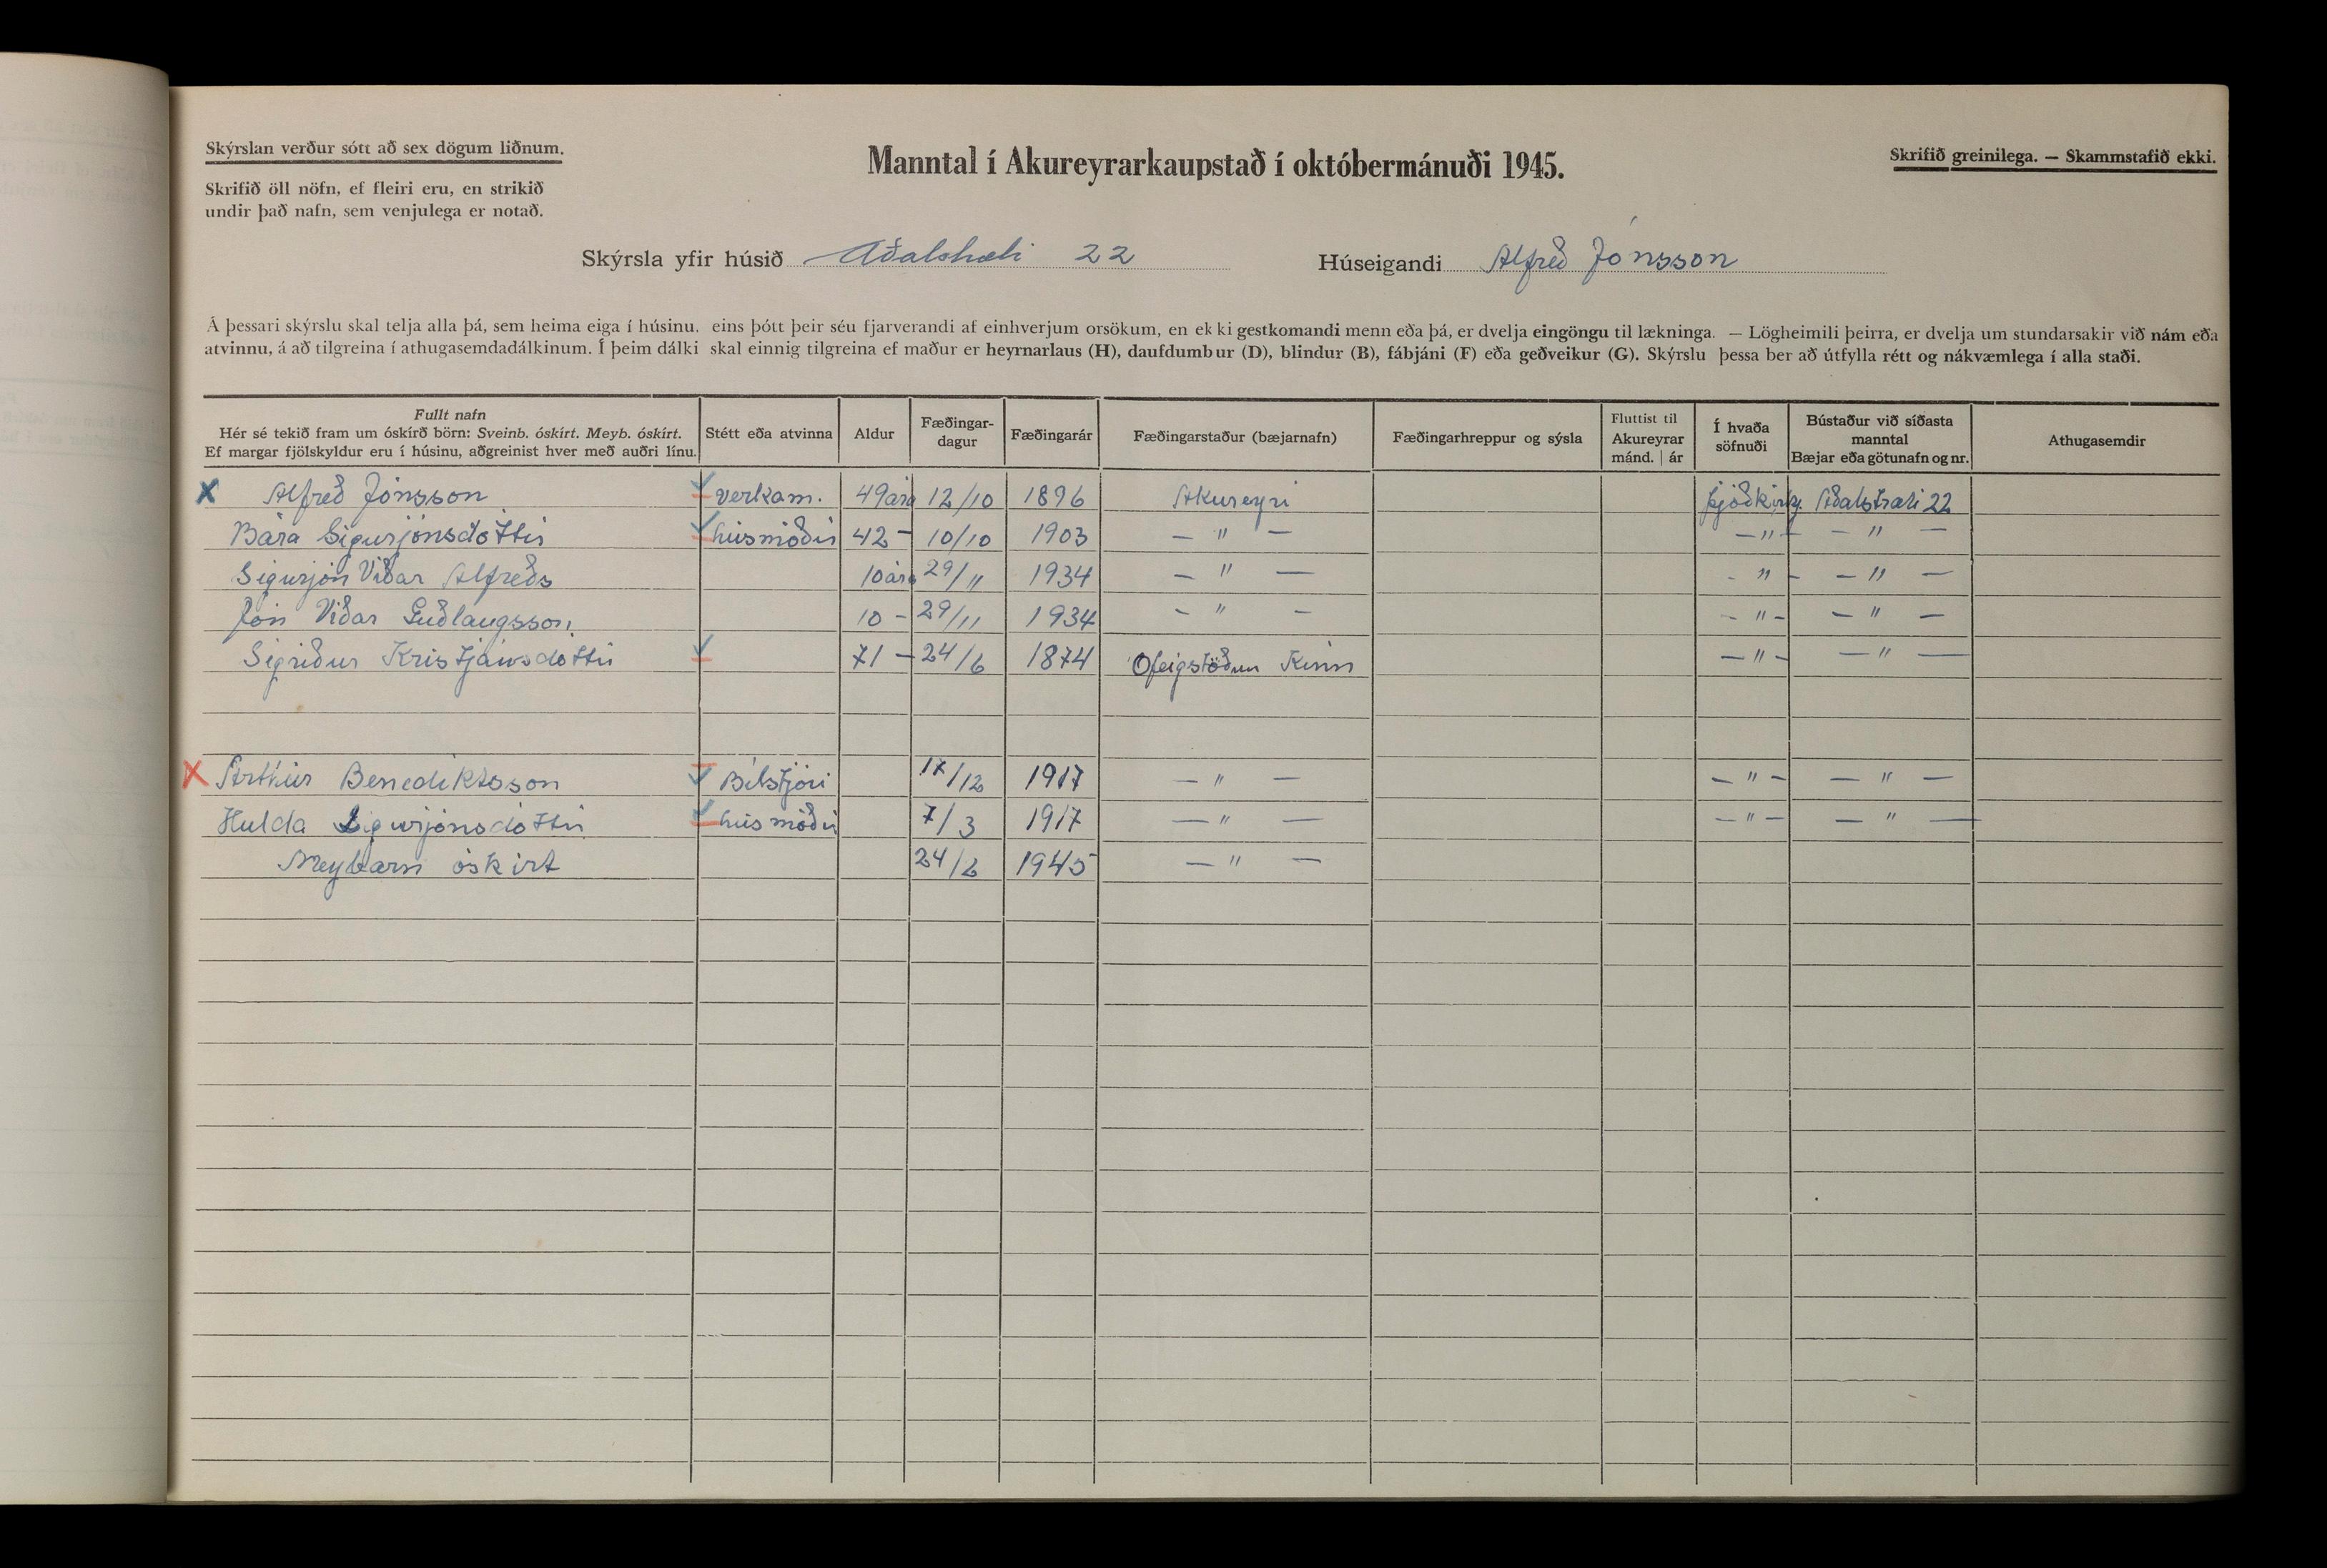 Skýrslan verður sótt að sex dögum liðnum.
Skrifið öll nöfn, ef fleiri eru, en strikið
undir það nafn, sem venjulega er notað.
Manntal í Akureyrarkaupstað í októbermánuði 1945.
Skrifið greinilega. — Skammstafið ekki.
Skýrsla yfir húsið Aðalstræti 22
Húseigandi Alfreð Jónsson
Á þessari skýrslu skal telja alla þá, sem heima eiga í húsinu, eins þótt þeir séu fjarverandi af einhverjum orsökum, en ekki gestkomandi menn eða þá, er dvelja eingöngu til lækninga. — Lögheimili þeirra, er dvelja um stundarsakir við nám eða
atvinnu, á að tilgreina í athugasemdadálkinum. Í þeim dálki skal einnig tilgreina ef maður er heyrnarlaus (H), daufdumbur (D), blindur (B), fábjáni (F) eða geðveikur (G). Skýrslu þessa ber að útfylla rétt og nákvæmlega í alla staði.
Fullt nafn
Hér sé tekið fram um óskírð börn: Sveinb. óskírt. Meyb. óskírt.
Ef margar fjölskyldur eru í húsinu, aðgreinist hver með auðri línu.
Stétt eða atvinna
Aldur
Fæðingar-
dagur
Fæðingarár
Fæðingarstaður (bæjarnafn)
Fæðingarhreppur og sýsla
Fluttist til
Akureyrar
mánd. | ár
Í hvaða
söfnuði
Bústaður við síðasta
manntal
Bæjar eða götunafn og nr.
Athugasemdir
X Alfreð Jónsson verkam. 49 ára 12/10 1896 Akureyri þjóðkirkj. Aðalstræti 22
Bára Sigurjónsdóttir húsmóðir 42 — 10/10 1903 — " — — " — — " —
Sigurjón Viðar Alfreðs 10 ára 29/11 1934 — " — — " — — " —
Jón Viðar Guðlaugsson 10 — 29/11 1934 — " — — " — — " —
Sigríður Kristjánsdóttir 71 — 24/6 1874 Ofeigstöðum Kinn — " — — " —
X Arthúr Benediktsson Bílstjóri 17/12 1917 — " — — " — — " —
Hulda Sigurjónsdóttir húsmóðir 7/3 1917 — " — — " — — " —
Meybarn óskírt 24/2 1945 — " —